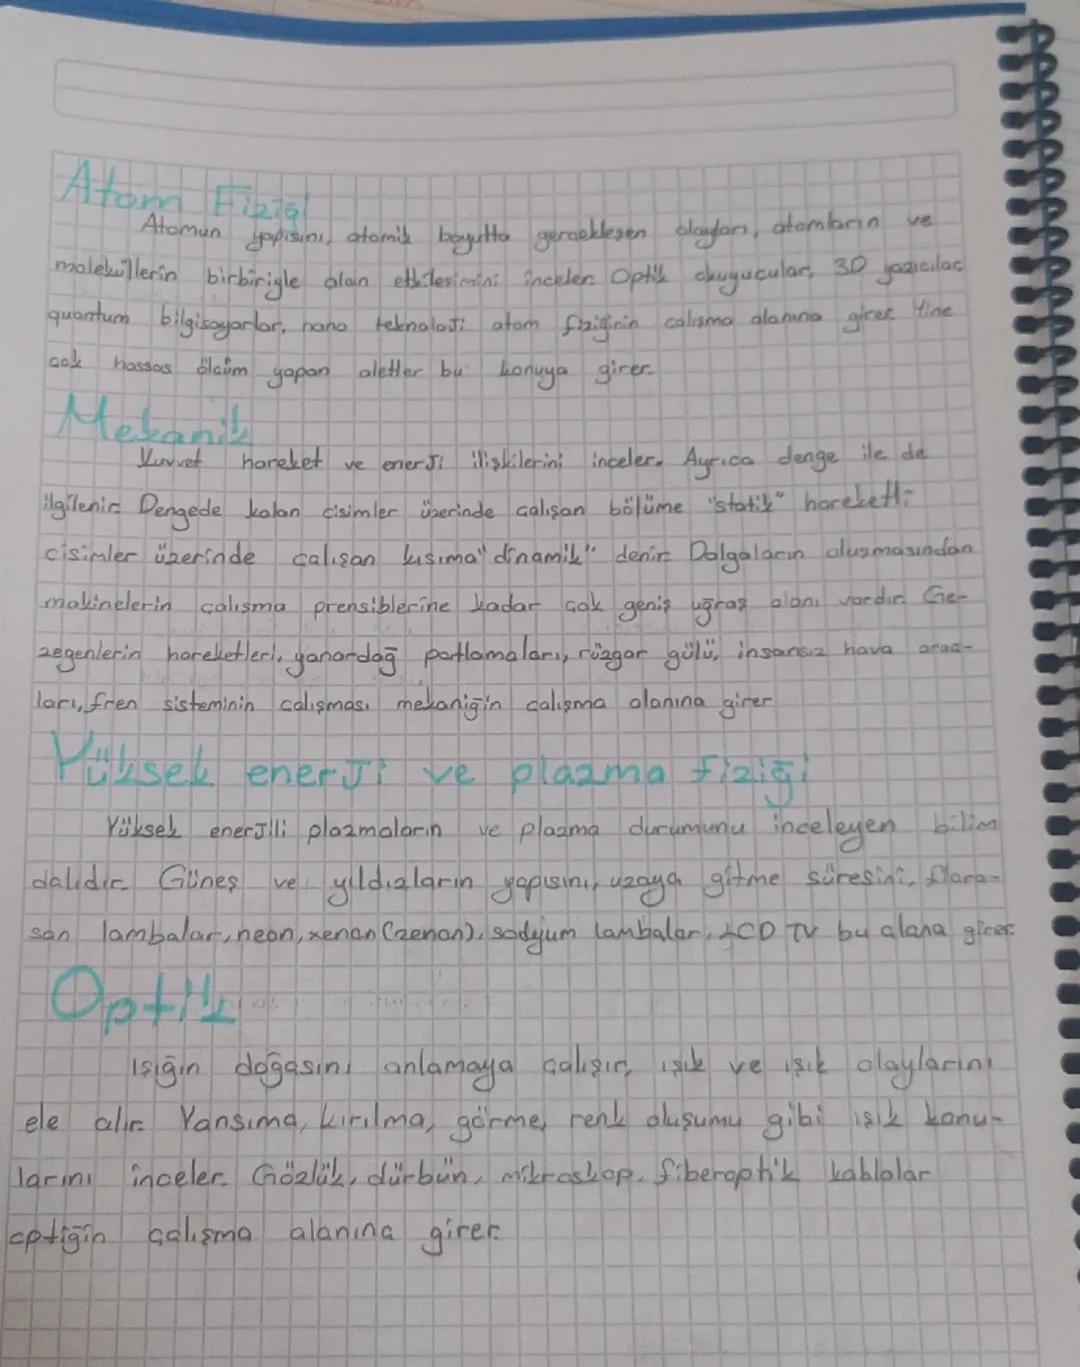 Atom Fiziği
Atomun yapısını, atomik boyutta gerçekleşen olayları, atomların ve
moleküllerin birbiriyle olan etkileşimini inceler. Optik okuyucular, 3D yazıcılar
quantum bilgisayarlar, nano teknoloji atom fiziğinin calışma alanına girer. Yine
çok hassas ölçüm yapan aletler bu konuya girer.
Mekanik
Kuvvet hareket ve enerji ilişkilerini inceler. Ayrıca denge ile de
ilgilenir. Dengede kalan cisimler üzerinde çalışan bölüme "statik" hareketli
cisimler üzerinde çalışan kısıma "dinamik" denir. Dalgaların oluşmasından
makinelerin çalışma prensiblerine kadar çok geniş uğraş alanı vardır. Ge-
zegenlerin hareketleri, yanardağ patlamaları, rüzgar gülü, insansız hava araç-
ları, fren sisteminin çalışması mekaniğin çalışma alanına girer
Yüksek enerji ve plazma fiziği
Yüksek enerjili plazmaların ve plazma durumunu inceleyen bilim
dalıdır. Güneş ve yıldızların yapısını, uzaya gitme süresini, flora-
san lambalar, neon, xenon (zenon), sodyum lambalar, LCD TV bu alana girer.
Optik
Işığın doğasını anlamaya çalışır, ışık ve ışık olaylarını
ele alır. Yansıma, kırılma, görme, renk oluşumu gibi ışık konu-
larını inceler. Gözlük, dürbün, mikroskop, fiberoptik kablolar
optiğin çalışma alanına girer.